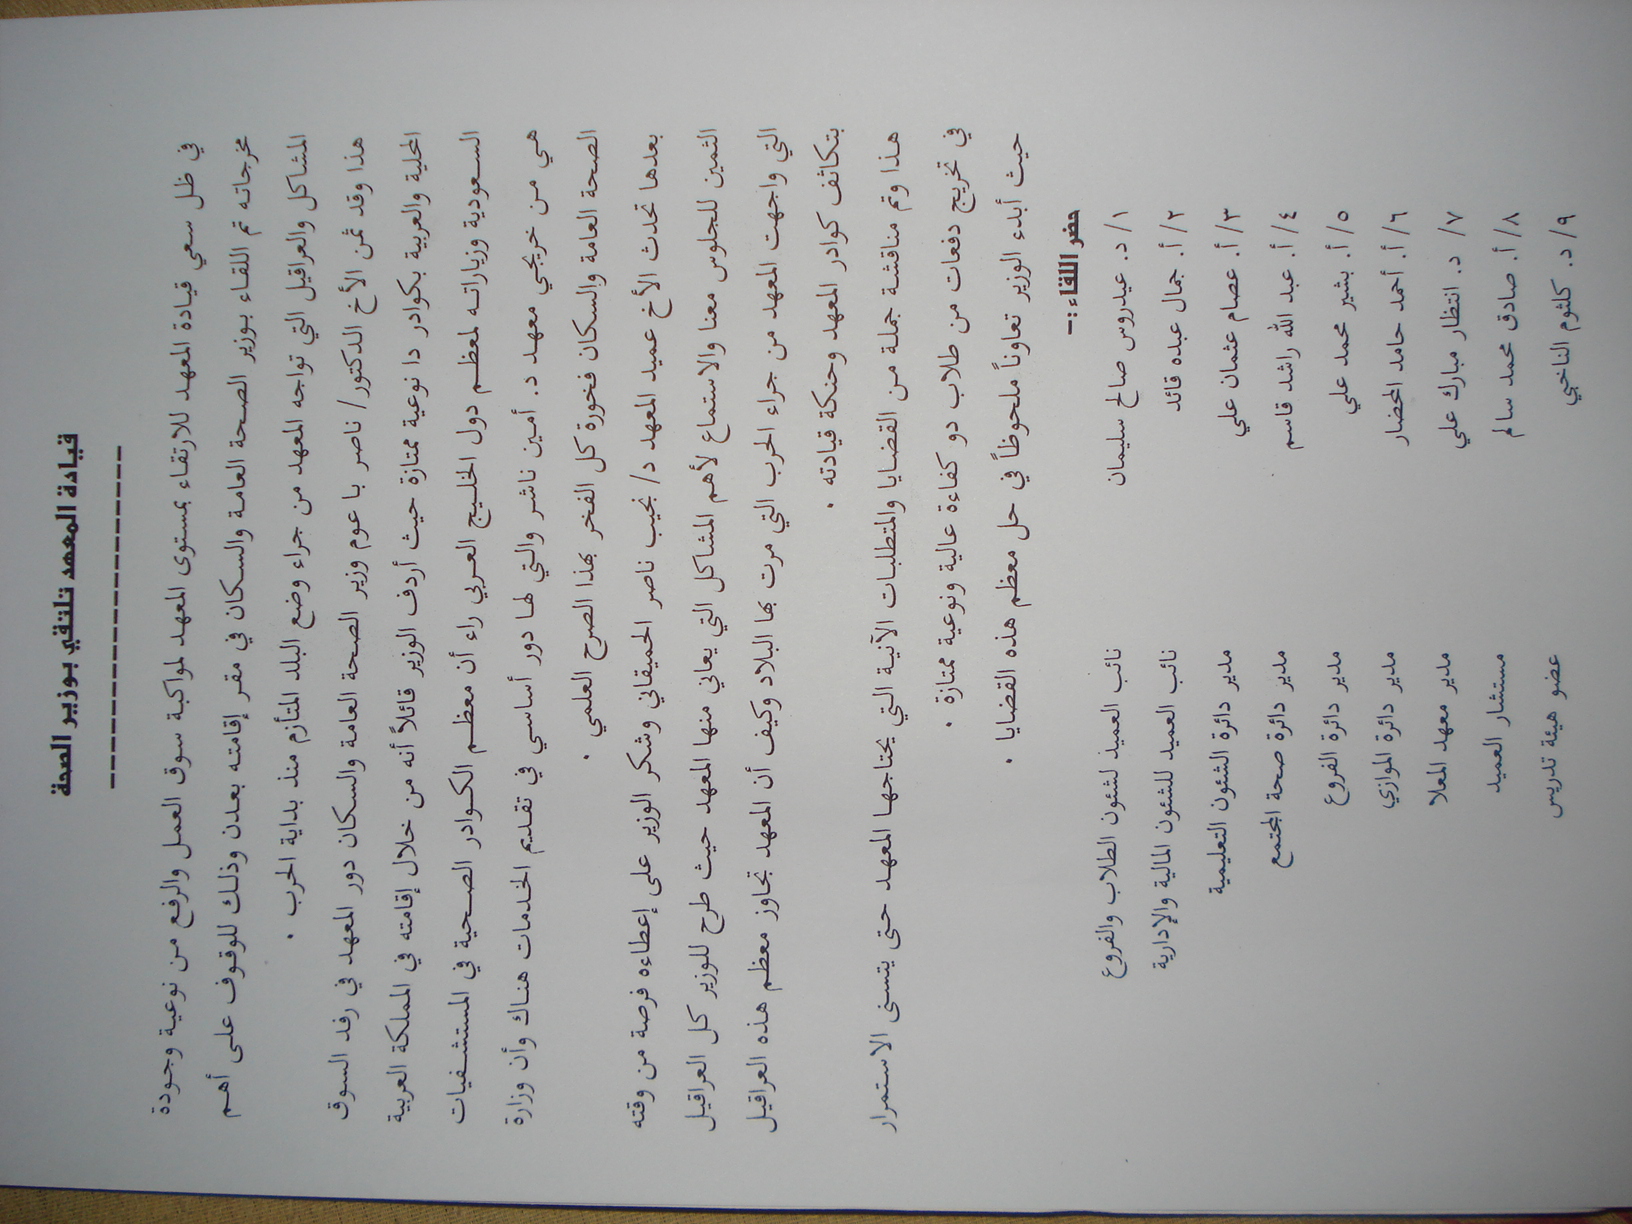 قيادة المعهد تلتقي بوزير الصحة
في ظل سعي قيادة المعهد للارتقاء بمستوى المعهد لمواكبة سوق العمل والرفع من نوعية وجودة
مخرجاته تم اللقاء بوزير الصحة العامة والسكان في مقر إقامته بعدن وذلك للوقوف على أهم
المشاكل والعراقيل التي تواجه المعهد من جراء وضع البلد المتأزم منذ بداية الحرب .
هذا وقد ثمن الأخ الدكتور/ ناصر با عوم وزير الصحة العامة والسكان دور المعهد في رفد السوق
المحلية والعربية بكوادر ذا نوعية ممتازة حيث أردف الوزير قائلاً أنه من خلال إقامته في المملكة العربية
السعودية وزياراته لمعظم دول الخليج العربي راء أن معظم الكوادر الصحية في المستشفيات
هي من خريجي معهد د. أمين ناشر والتي لها دور أساسي في تقديم الخدمات هناك وأن وزارة
الصحة العامة والسكان فخورة كل الفخر بهذا الصرح العلمي .
بعدها تحدث الأخ عميد المعهد د/ نجيب ناصر الحميقاني وشكر الوزير على إعطاءه فرصة من وقته
الثمين للجلوس معنا والاستماع لأهم المشاكل التي يعاني منها المعهد حيث طرح للوزير كل العراقيل
التي واجهت المعهد من جراء الحرب التي مرت بها البلاد وكيف أن المعهد تجاوز معظم هذه العراقيل
بتكاثف كوادر المعهد وحنكة قيادته .
هذا وتم مناقشة جملة من القضايا والمتطلبات الآنية التي يحتاجها المعهد حتى يتسنى الاستمرار
في تخريج دفعات من طلاب دو كفاءة عالية ونوعية ممتازة .
حيث أبدء الوزير تعاوناً ملحوظاً في حل معظم هذه القضايا .
حضر اللقاء :-
١/ د. عيدروس صالح سليمان نائب العميد لشئون الطلاب والفروع
٢/ أ. جمال عبده قائد نائب العميد للشئون المالية والإدارية
٣/ أ. عصام عثمان علي مدير دائرة الشئون التعليمية
٤/ أ. عبد الله راشد قاسم مدير دائرة صحة المجتمع
٥/ أ. بشير محمد علي مدير دائرة الفروع
٦/ أ. أحمد حامد المحضار مدير دائرة الموازي
٧/ د. انتظار مبارك علي مدير معهد المعلا
٨/ أ. صادق محمد سالم مستشار العميد
٩/ د. كلثوم الناخبي عضو هيئة تدريس